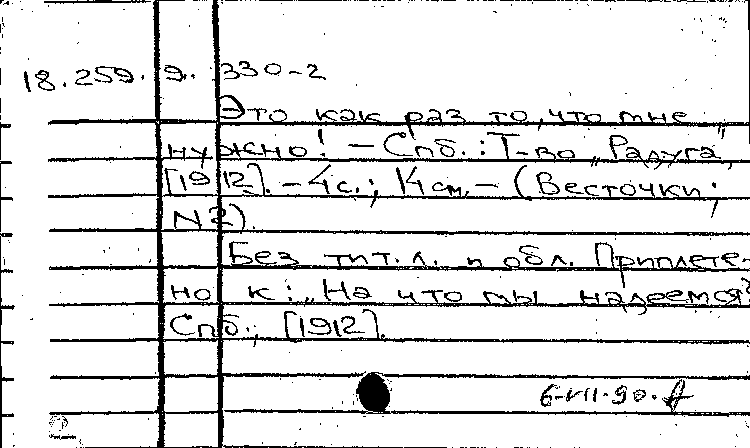 18.259.9.330-2
Это как раз то, что мне
нужно! – Спб.: Т-во „Радуга",
[1912]. – 4с.; 14см. – (Весточки;
N2).
Без тит. л. и обл. Приплете-
но к: „На что мы надеемся?
Спб., [1912].
6-VII-90.